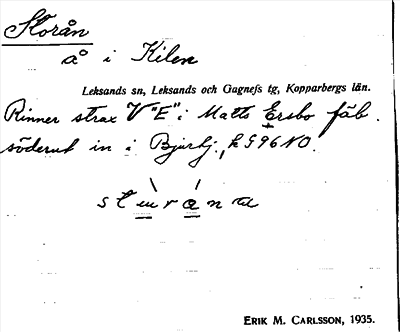 Storån
å i Kilen
Leksands sn, Leksands och Gagnefs tg, Kopparbergs län.
Rinner strax V "E" i Matts Ersbo fäb.
söderut in i Bjurbj., k 596 NO.
ERIK M. CARLSSON, 1935.